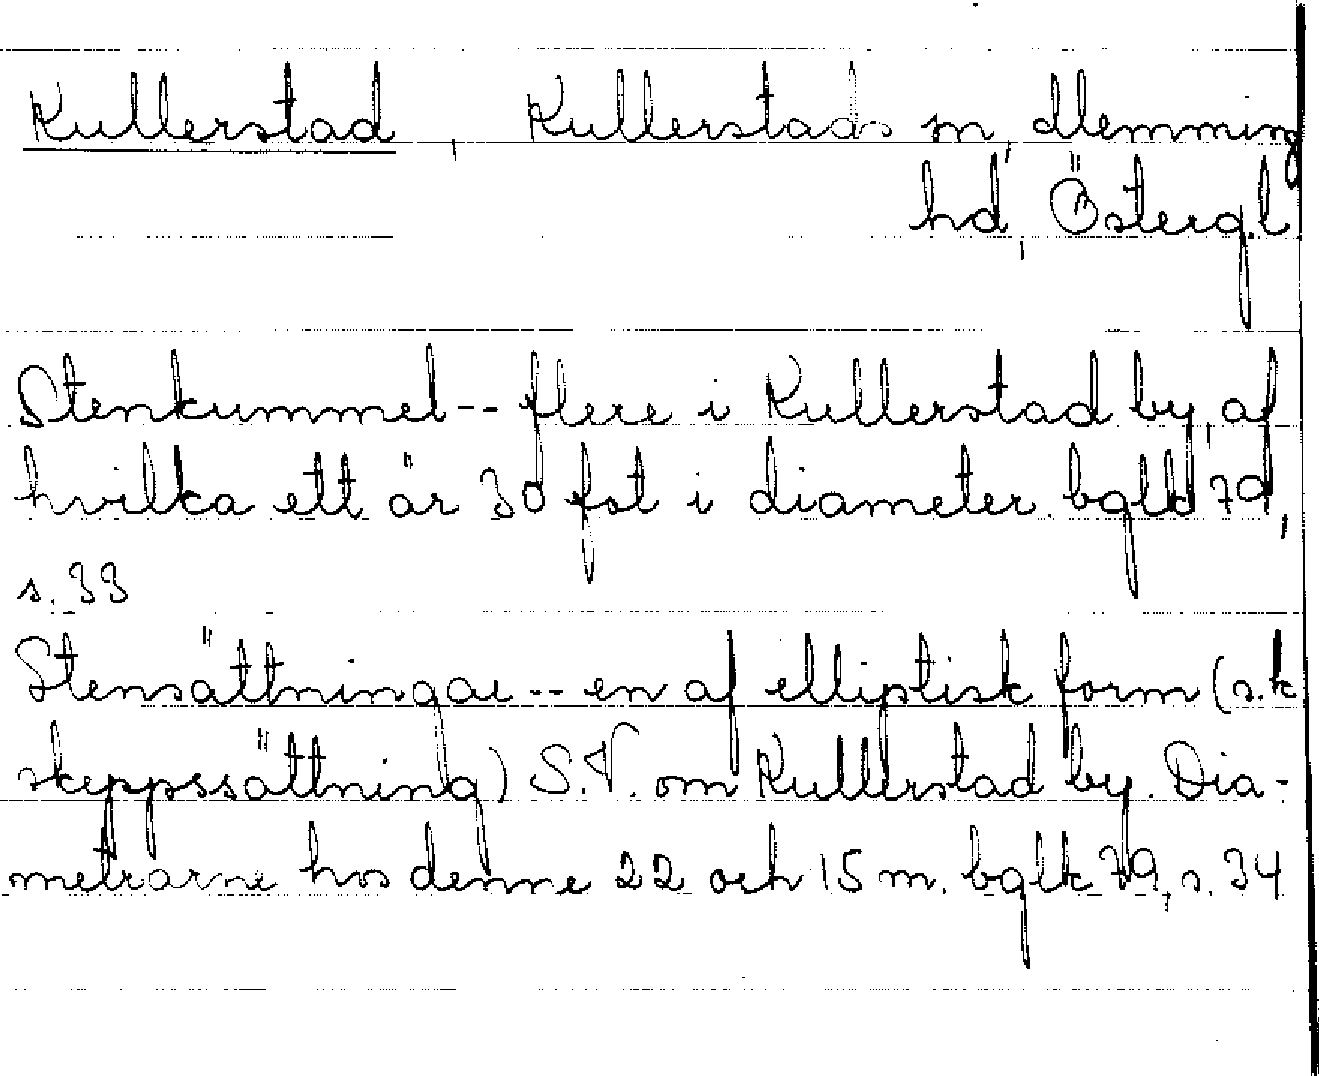 Kullerstad, Kullerstads sn, Memming
hd, Östergl.
Stenkummel -- flere i Kullerstad by, af
hvilka ett är 30 fot i diameter. bgld 79,
s. 33
Stensättningar -- en af elliptisk form (s.k
skeppssättning) S.V. om Kullerstad by. Dia-
metrarne hos denne 22 och 15 m. bglk 79, s. 34